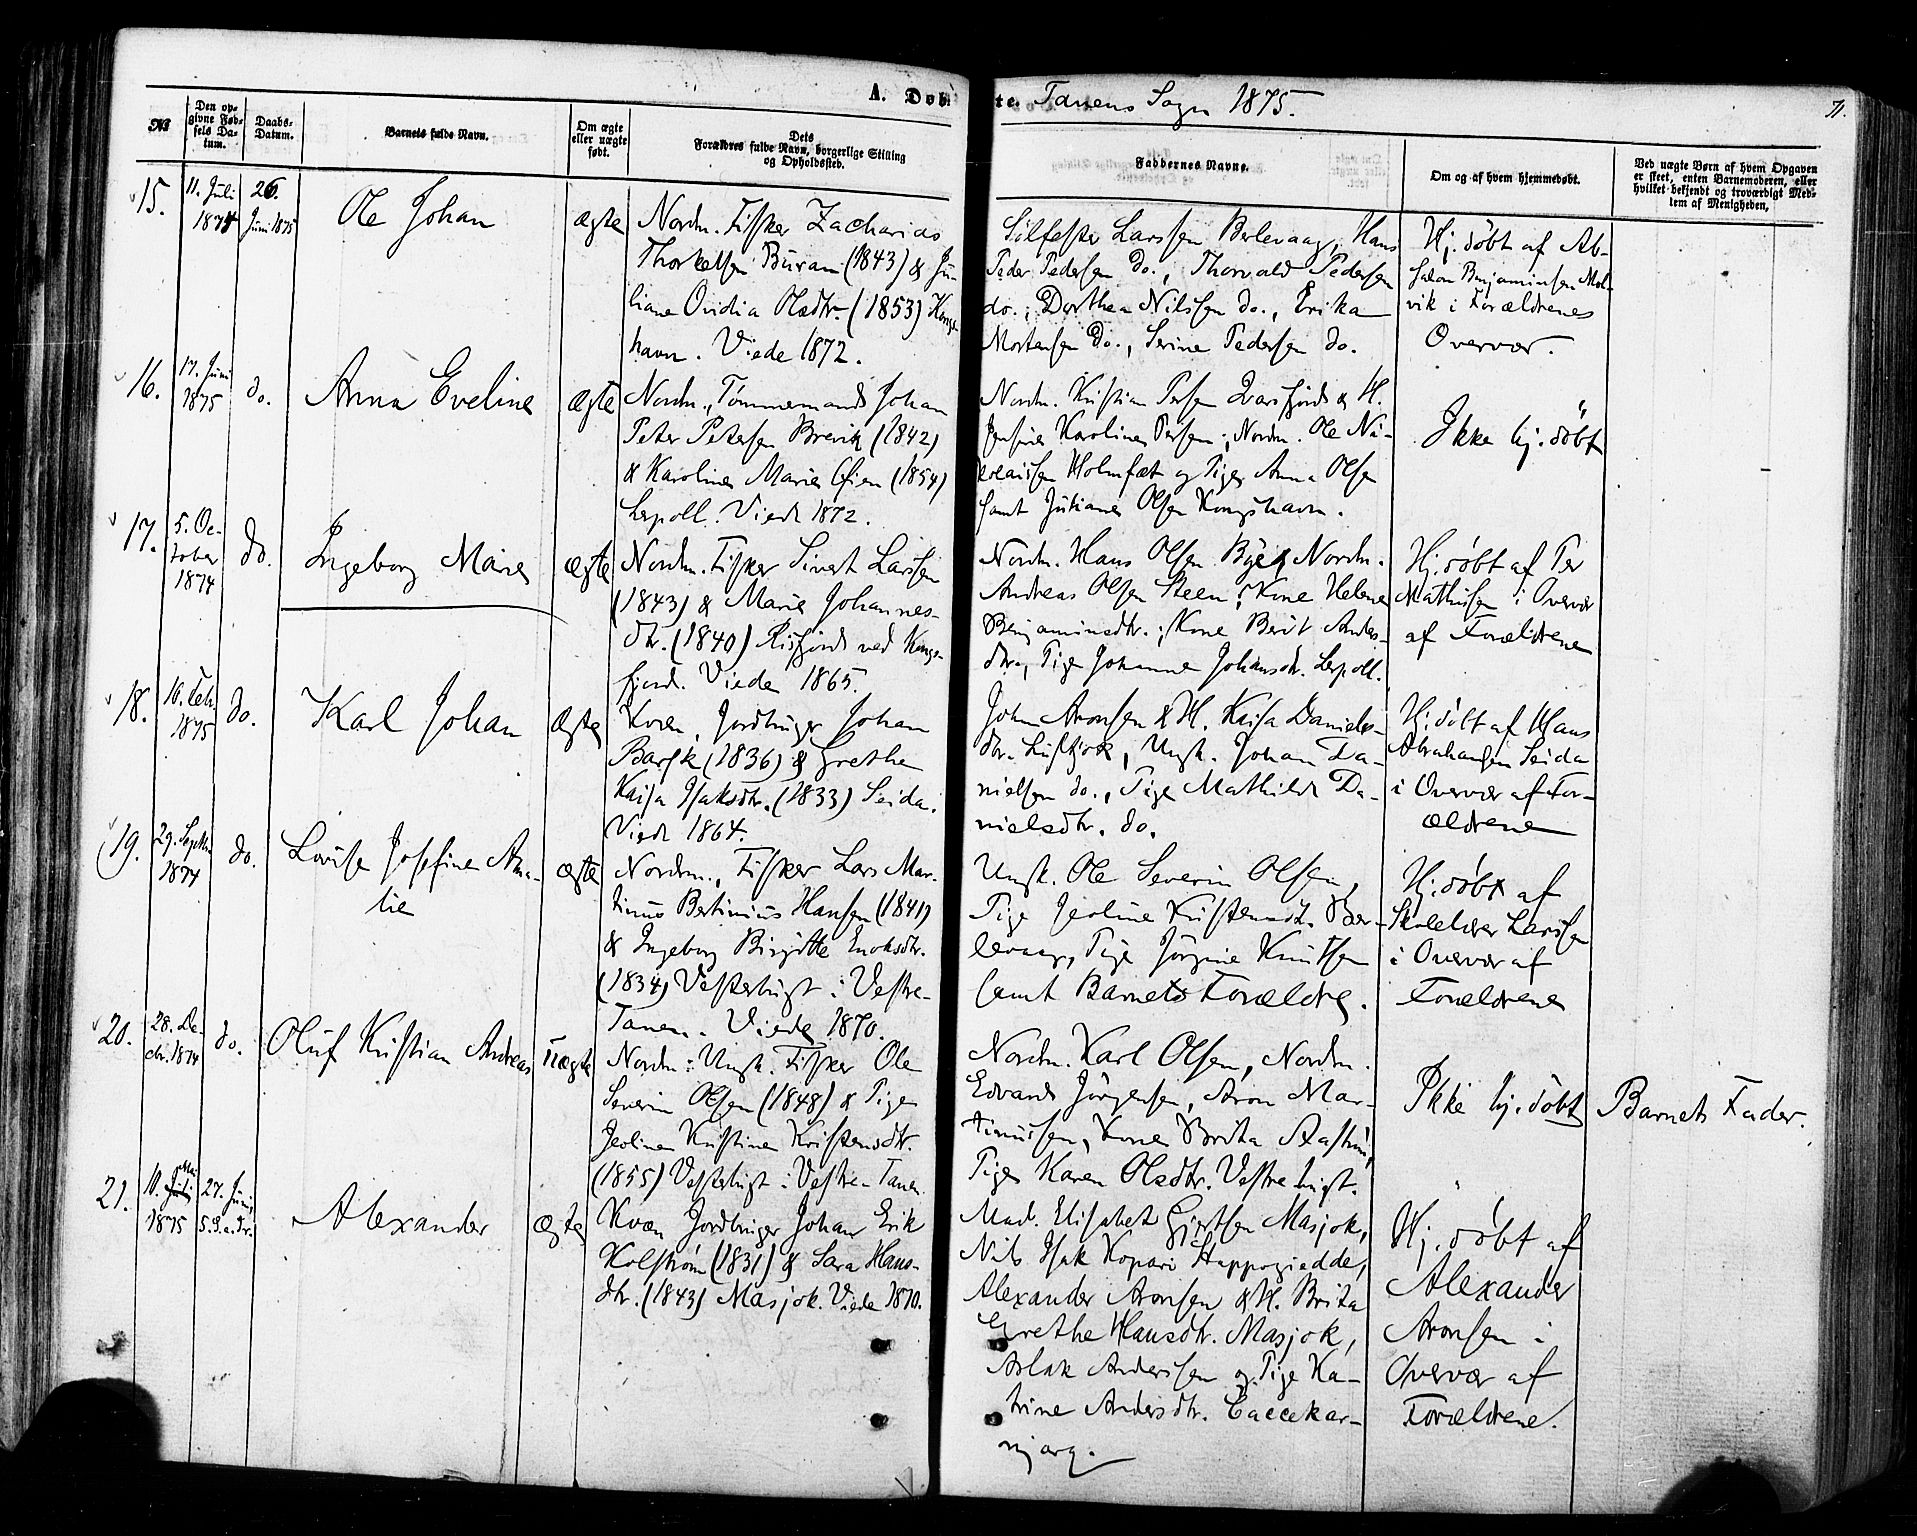 A. Døbte. Tanens Sogn 1875.
71.
№
Den op-
givne Fød-
sels Da-
tum.
Daabs-
Datum.
Barnets fulde Navn.
Om ægte
eller uægte
født.
Dets
Forældres fulde Navn, borgerlige Stilling
og Opholdssted.
Faddernes Navne.
Om og af hvem hjemmedøbt.
Ved uægte Børn af hvem Opgaven
er skeet, enten Barnemoderen, eller
hvilket bekjendt og troværdigt Med-
lem af Menigheden.
15.
11. Juli
1874
26.
Juni 1875
Ole Johan
ægte
Nordm. Fisker Zacharias
Thorkelsen Buvam (1843) & Ju-
liane Ovidia Olsdtr. (1853) Kongs-
havn. Viede 1872.
Silfester Larssen Berlevaag, Hans
Peder Pedersen do., Thorvald Pedersen
do., Dorthea Nilssen do., Erika
Mortensen do., Serine Pedersen do.
Hj. døbt af Ab-
salon Benjaminsen Mol-
vik i Forældrenes
Overvær.
16.
17. Juni
1875
do.
Anna Eveline
ægte
Nordm., Tømmermand Johan
Peter Petersen Brevik (1842)
& Karoline Marie Øien (1854)
Lerpoll. Viede 1872.
Nordm. Kristian Persen & H.
Jensine Karoline Persen, Nordm. Ole Ni-
kolaisen Holmfæt og Pige Anna Olsen
samt Juliane Olsen Kongshavn.
Ikke hj. døbt
17.
5. Oc-
tober
1874
do.
Ingeborg Marie
ægte
Nordm. Fisker Sivert Larsen
(1843) & Marie Johannes-
dtr. (1840) Risfjord ved Kongs-
fjord. Viede 1865.
Nordm. Hans Olsen Bye, Nordm.
Andreas Olsen Steen, Kone Helene
Benjaminsdtr., Kone Berit Anders-
dtr., Pige Johanne Johansdtr. Lerpoll.
Hj. døbt af Per
Mathisen i Overvær
af Forældrene
18.
16. Feb.
1875
do.
Karl Johan
ægte
Kvæn, Jordbruger Johan
Barsk (1836) & Grethe
Kaisa Isaksdtr. (1833) Seida.
Viede 1864.
John Aronsen & H. Kaisa Daniels-
dtr. Luftjok, Ungk. Johan Da-
nielsen do., Pige Mathilde Da-
nielsdtr. do.
Hj. døbt af Hans
Abrahamsen Seida
i Overvær af For-
ældrene
19.
29. Septbr.
1874
do.
Lovise Josefine Ama-
lie
ægte
Nordm., Fisker Lars Mar-
tinus Bertinius Hansen (1841)
& Ingeborg Birgitte Enoksdtr.
(1834) Vesterbugt i Vestre-
Tanen. Viede 1870.
Ungk. Ole Severin Olsen,
Pige Jeoline Kristensdtr. Ber-
levaag, Pige Jørgine Knutsen
samt Barnets Forældre.
Hj. døbt af
Skolelærer Larssen
i Overvær af
Forældrene
20.
28. De-
cbr. 1874
do.
Oluf Kristian Andreas
uægte
Nordm. Ungk. Fisker Ole
Severin Olsen (1848) & Pige
Jeoline Kristine Kristensdtr.
(1855) Vesterbugt i Vestre-Tanen.
Nordm. Karl Olsen, Nordm.
Edvard Jørgensen, Aron Mar-
tinussen, Kone Brita
Pige Karen Olsdtr. Vestre bugt.
Ikke hj. døbt
Barnets Fader.
21.
10. Juli Mai
1875
27. Juni,
5. S. e. Tr.
Alexander
ægte
Kvæn Jordbruger Johan Erik
Kolstrøm (1831) & Sara Hans-
dtr. (1843) Masjok. Viede 1870.
Mad. Elisabet Gjertsen Masjok,
Nils Isak Kopari Happogiedde,
Alexander Aronsen & H. Brita
Grethe Hansdtr. Masjok,
Aslak Anderssen og Pige Ka-
trine Andersdtr. Caccekar-
njarg.
Hj. døbt af
Alexander
Aronsen i
Overvær af
Forældrene.